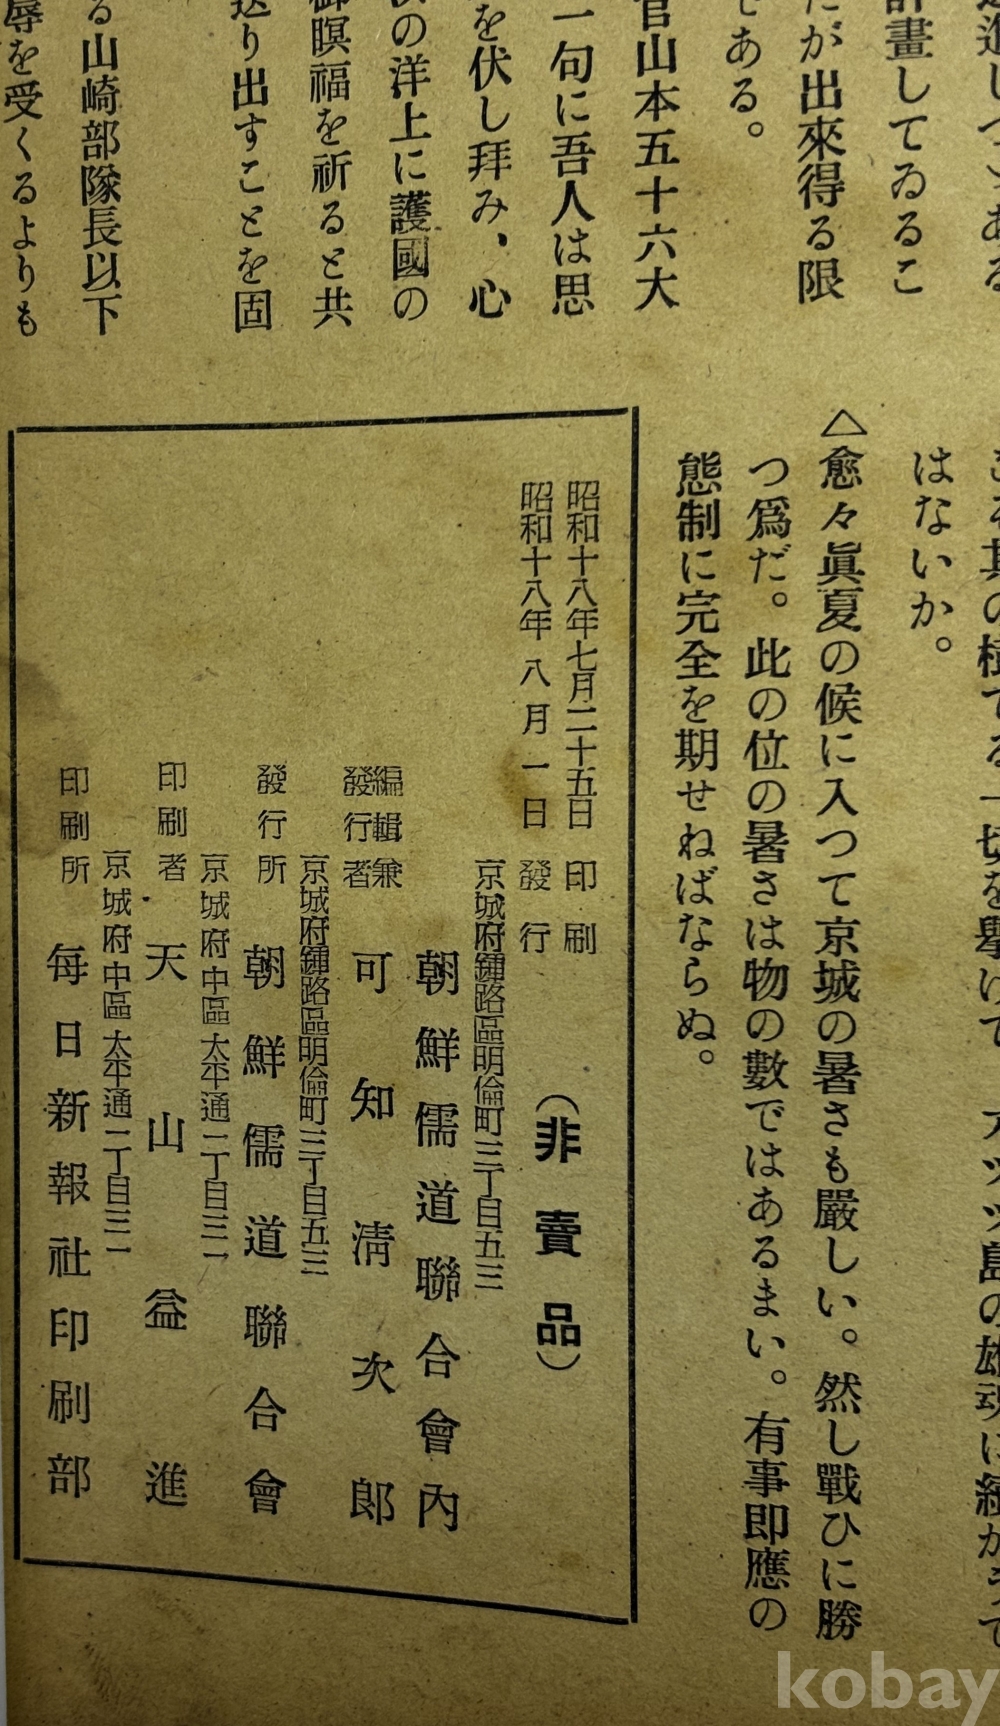 進しつゝある
計畫してゐるこ
だが出來得る限
である。
官山本五十六大
一句に吾人は思
を伏し拜み、心
の洋上に護國の
御瞑福を祈ると共
送り出すことを固
る山崎部隊長以下
辱を受くるよりも
はないか。
△愈々眞夏の候に入つて京城の暑さも嚴しい。然し戰ひに勝
つ爲だ。此の位の暑さは物の數ではあるまい。有事即應の
態制に完全を期せねばならぬ。
昭和十八年七月二十五日 印刷
昭和十八年 八月 一日 發行
(非賣品)
京城府鍾路區明倫町三丁目五三
朝鮮儒道聯合會內
編輯兼發行者 可知淸次郎
京城府鍾路區明倫町三丁目五三
發行所 朝鮮儒道聯合會
京城府中區太平通二丁目三一
印刷者 天山益進
京城府中區太平通二丁目三一
印刷所 每日新報社印刷部
kobay